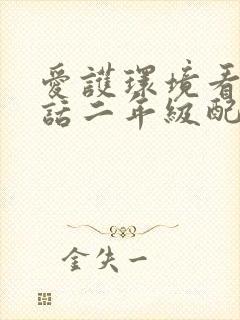 愛護環境看
話二年級配
金失一